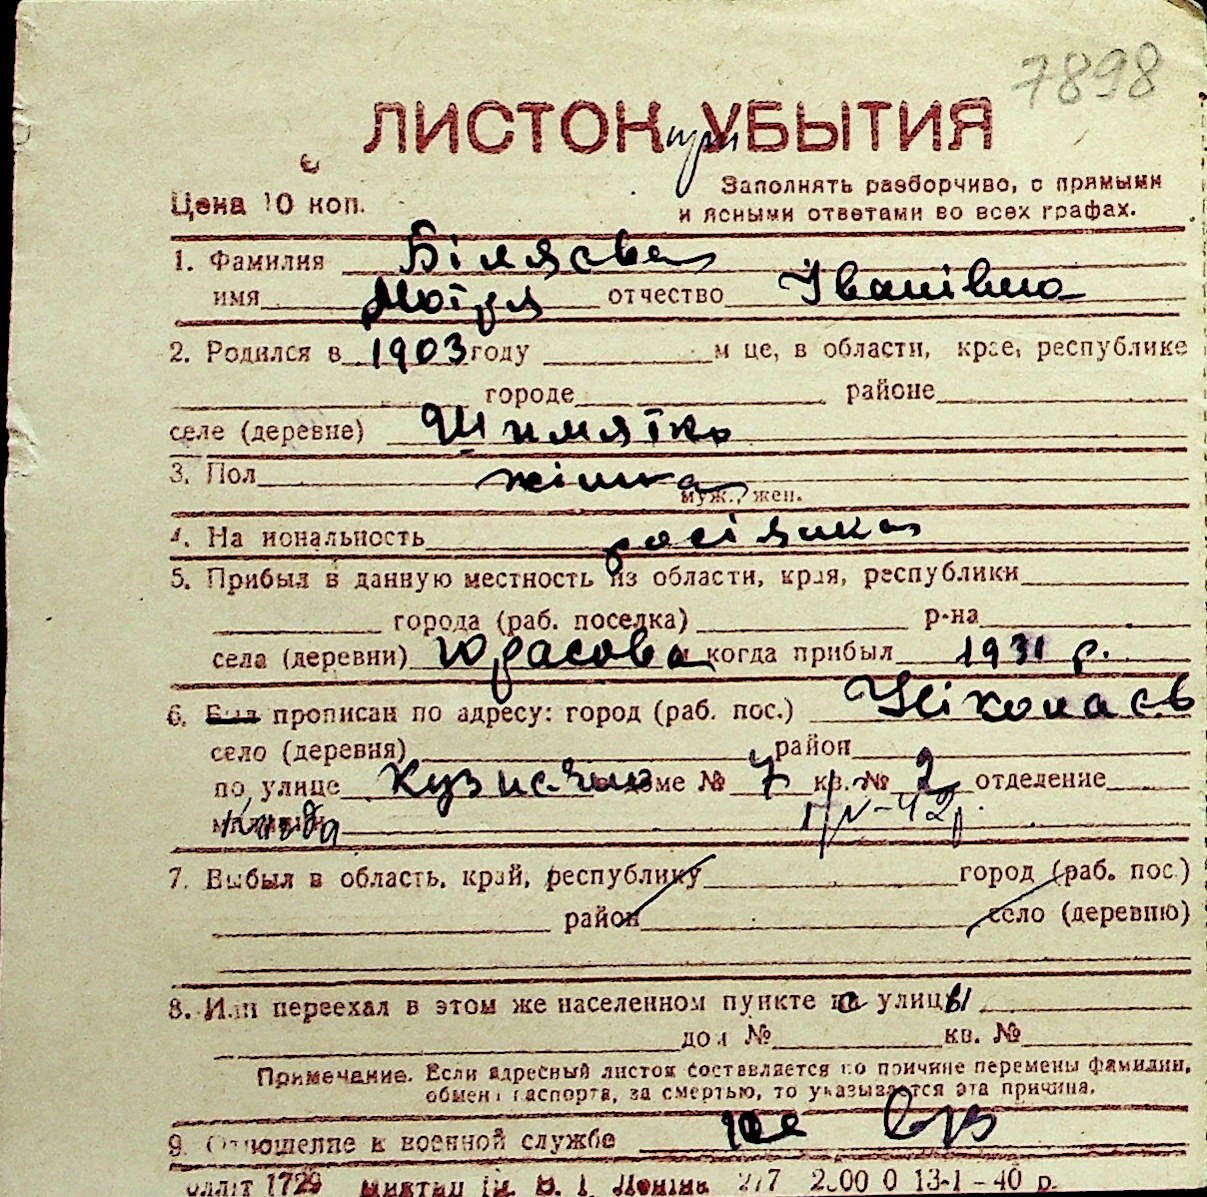 7898
ЛИСТОК при УБЫТИЯ
Цена 10 коп.
Заполнять разборчиво, с прямыми
и ясными ответами во всех графах.
1. Фамилия Біляєва
имя Мотря отчество Іванівна
2. Родился в 1903 году м це, в области, крае, республике
городе районе
селе (деревне)
3. Пол жінка
муж., жен.
4. На иональность росіянка
5. Прибыл в данную местность из области, края, республики
города (раб. поселка) р-на
села (деревни) Юрасова когда прибыл 1931 р.
6. Был прописан по адресу: город (раб. пос.) Ніколаєв
село (деревня) район
по улице Кузнечно доме № 7 кв. № 2 отделение
милиции 1/IV-42р.
7. Выбыл в область, край, республику город (раб. пос.)
район село (деревню)
8. Или переехал в этом же населенном пункте с улицы
дом № кв. №
Примечание. Если адресный листок составляется по причине перемены фамилии,
обмена паспорта, за смертью, то указывается эта причина.
9. Отношение к военной службе не
1729 В. І. Леніна 277 2.00 0 13-1-40 р.